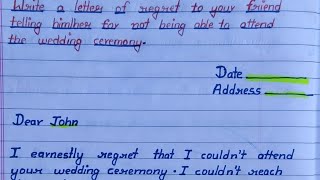 Write a letter of regret to your friend
telling him/her for not being able to attend
the wedding ceremony.
Date
Address
Dear John
I earnestly regret that I couldn't attend
your wedding ceremony. I couldn't reach